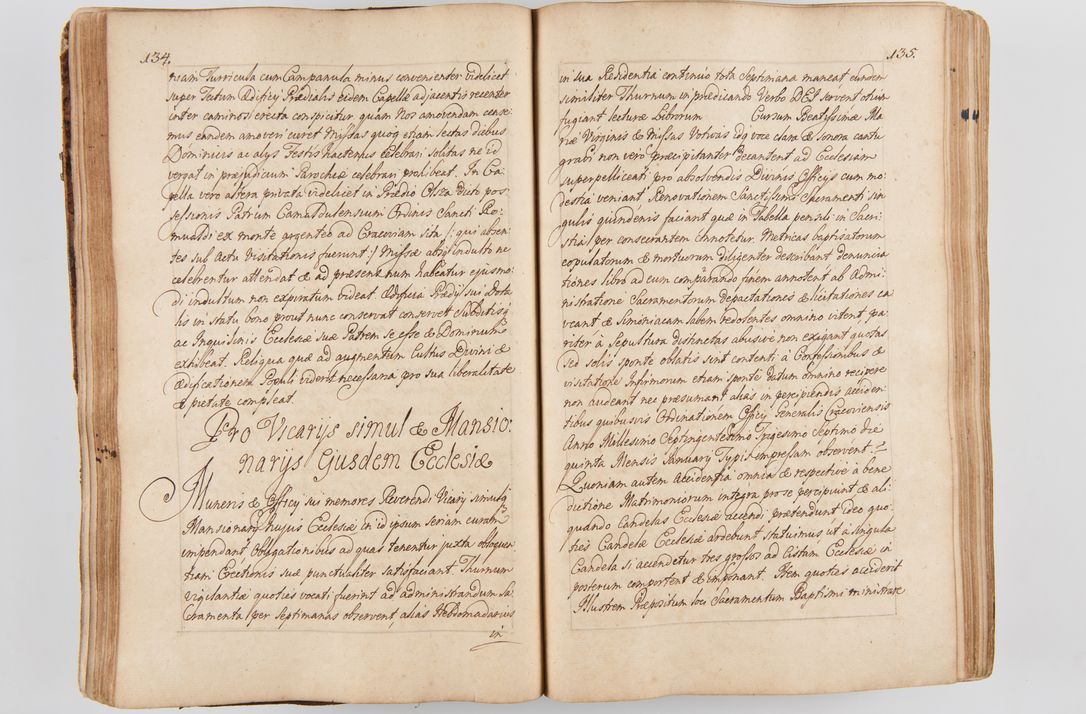 134.
niam Turricula cum Campanula minus convenienter videlicet
super Tectum Ædificij Prædialis eidem Capellæ adjacentis recenter
inter caminos erecta conspicitur, quam Nos amovendam cense-
mus eandem amoveri curet Missas quoq etiam Lectas diebus
Dominicis ac alijs Festis hactenus celebrari solitas ne id
vergat in præjudicium Parochiæ celebrari prohibeat. In Ca-
pella vero altera privata videlicet in Prædio Olsza dicto pos-
sessionis Patrum Camaldulensium Ordinis Sancti Ro-
mualdi ex monte argenteo ad Cracoviam sita /: qui absen-
tes sub actu Visitationis fuerunt :/ Missæ absq indulto ne
celebrentur attendat & ad præsens num habeatur ejusmo-
di indultum non expiratum videat. Ædificia Prædij sui Dota-
lis in statu bono prout nunc conservat conservet Subditisq
ac Inquilinis Ecclesiæ suæ Patrem se esse & Dominum
exhibeat. Reliqua quæ ad augmentum Cultus Divini &
Ædificationem Populi viderit necessaria pro sua liberalitate
& pietate compleat.
Pro Vicarijs simul & Mansio-
narijs Ejusdem Ecclesiæ
Muneris & Officij sui memores Reverendi Vicarij simulq
Mansionarij Hujus Ecclesiæ in id ipsum seriam curam
impendant Obligationibus ad quas tenentur juxta obloquen-
tiam Erectionis suæ punctualiter satisfaciant. Thurnum
vigilantiæ quoties vocati fuerint ad administrandum Sa-
cramenta per septimanas observent, alias Hebdomadarius
in
135.
in sua Residentia continuo tota Septimana maneat eundem
similiter Thurnum in prædicando Verbo DEI servent otium
fugiant lecturæ Librorum Cursum Beatissimæ Ma-
riæ Virginis & Missas Votivas idq voce clara & sonora cantu
gravi non vero præcipitanter decantent ad Ecclesiam
superpelliceati pro absolvendis Divinis Officijs cum mo-
destia veniant, Renovationem Sanctissimi Sacramenti sin-
gulis quindenis faciant quæ in Tabella pensili in Sacri-
stia per consecrantem connotetur. Metricas baptisatorum
copulatorum & mortuorum diligenter describant denuncia-
tiones libro ad cum comparando finem annotent ab Admi-
nistratione Sacramentorum depactationes & licitationes ca-
veant & Simoniacam labem redolentes omnino vitent pa-
riter a sepultura distinctas abusive non exigant quotas
sed solis sponte oblatis sint contenti à Confessionibus &
visitatione Infirmorum etiam sponte datum omnino recipere
non audeant nec præsumant alias in percipiendis acciden-
tibus quibusvis Ordinationem Officij Generalis Cracoviensis
Anno Millesimo Septingentesimo Trigesimo Septimo die
quinta Mensis January Typis impressam observent.
Quoniam autem Accidentia omnia & respective à bene-
dictione Matrimoniorum integra pro se percipiunt & ali-
quando Candelas Ecclesiæ accendi prætendunt ideo quo-
ties Candelæ Ecclesiæ ardebunt statuimus ut à singula
Candela si accendetur tres grossos ad Cistam Ecclesiæ in
posterum comportent & imponant. Item quoties acciderit
Illustrem Præpositum loci Sacramentum Baptismi ministrare